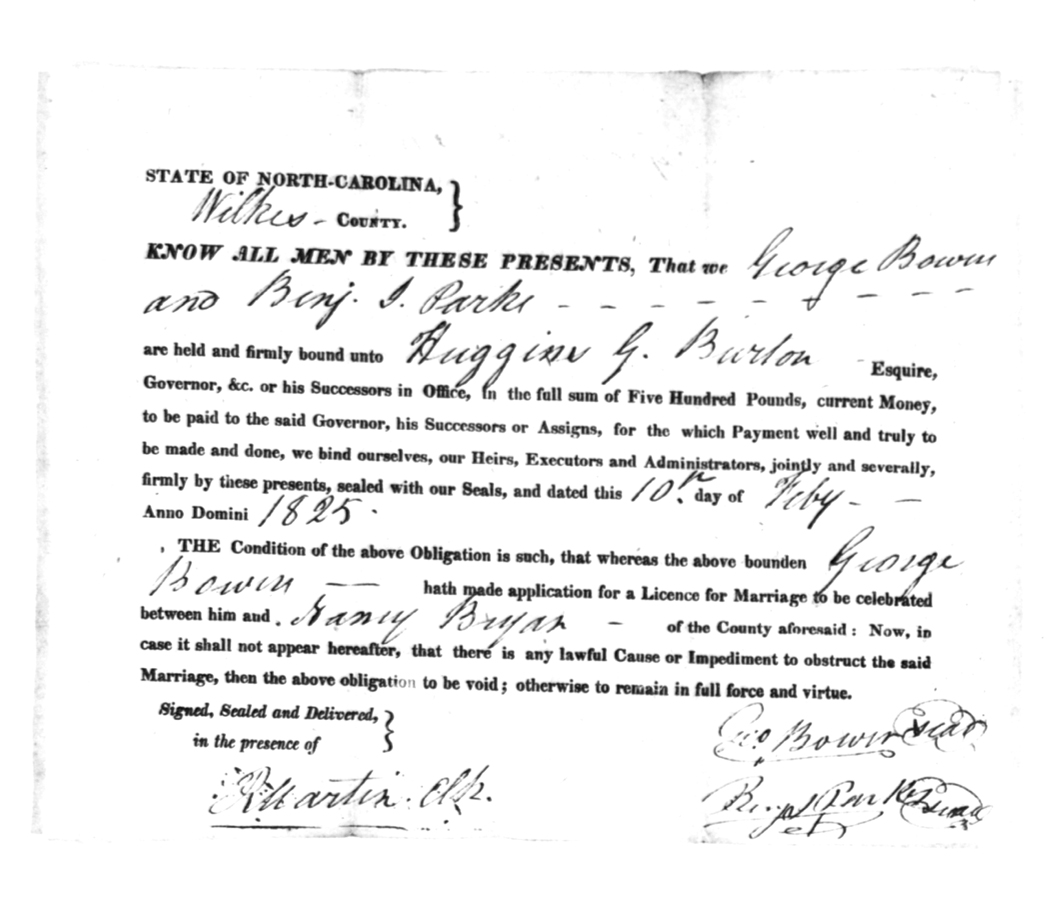 STATE OF NORTH-CAROLINA,
Wilkes - COUNTY.
KNOW ALL MEN BY THESE PRESENTS, That we George Bowen
and Benj. J. Parks - - - - - - - - -
are held and firmly bound unto Huggins G. Burton Esquire,
Governor, &c. or his Successors in Office, in the full sum of Five Hundred Pounds, current Money,
to be paid to the said Governor, his Successors or Assigns, for the which Payment well and truly to
be made and done, we bind ourselves, our Heirs, Executors and Administrators, jointly and severally,
firmly by these presents, sealed with our Seals, and dated this 10th. day of Feby - -
Anno Domini 1825.
THE Condition of the above Obligation is such, that whereas the above bounden George
Bowen — hath made application for a Licence for Marriage to be celebrated
between him and Nancy Bryan - of the County aforesaid: Now, in
case it shall not appear hereafter, that there is any lawful Cause or Impediment to obstruct the said
Marriage, then the above obligation to be void; otherwise to remain in full force and virtue.
Signed, Sealed and Delivered,
in the presence of
Geo Bowen Seal
R Martin. Clk.
Benj J Parks Seal